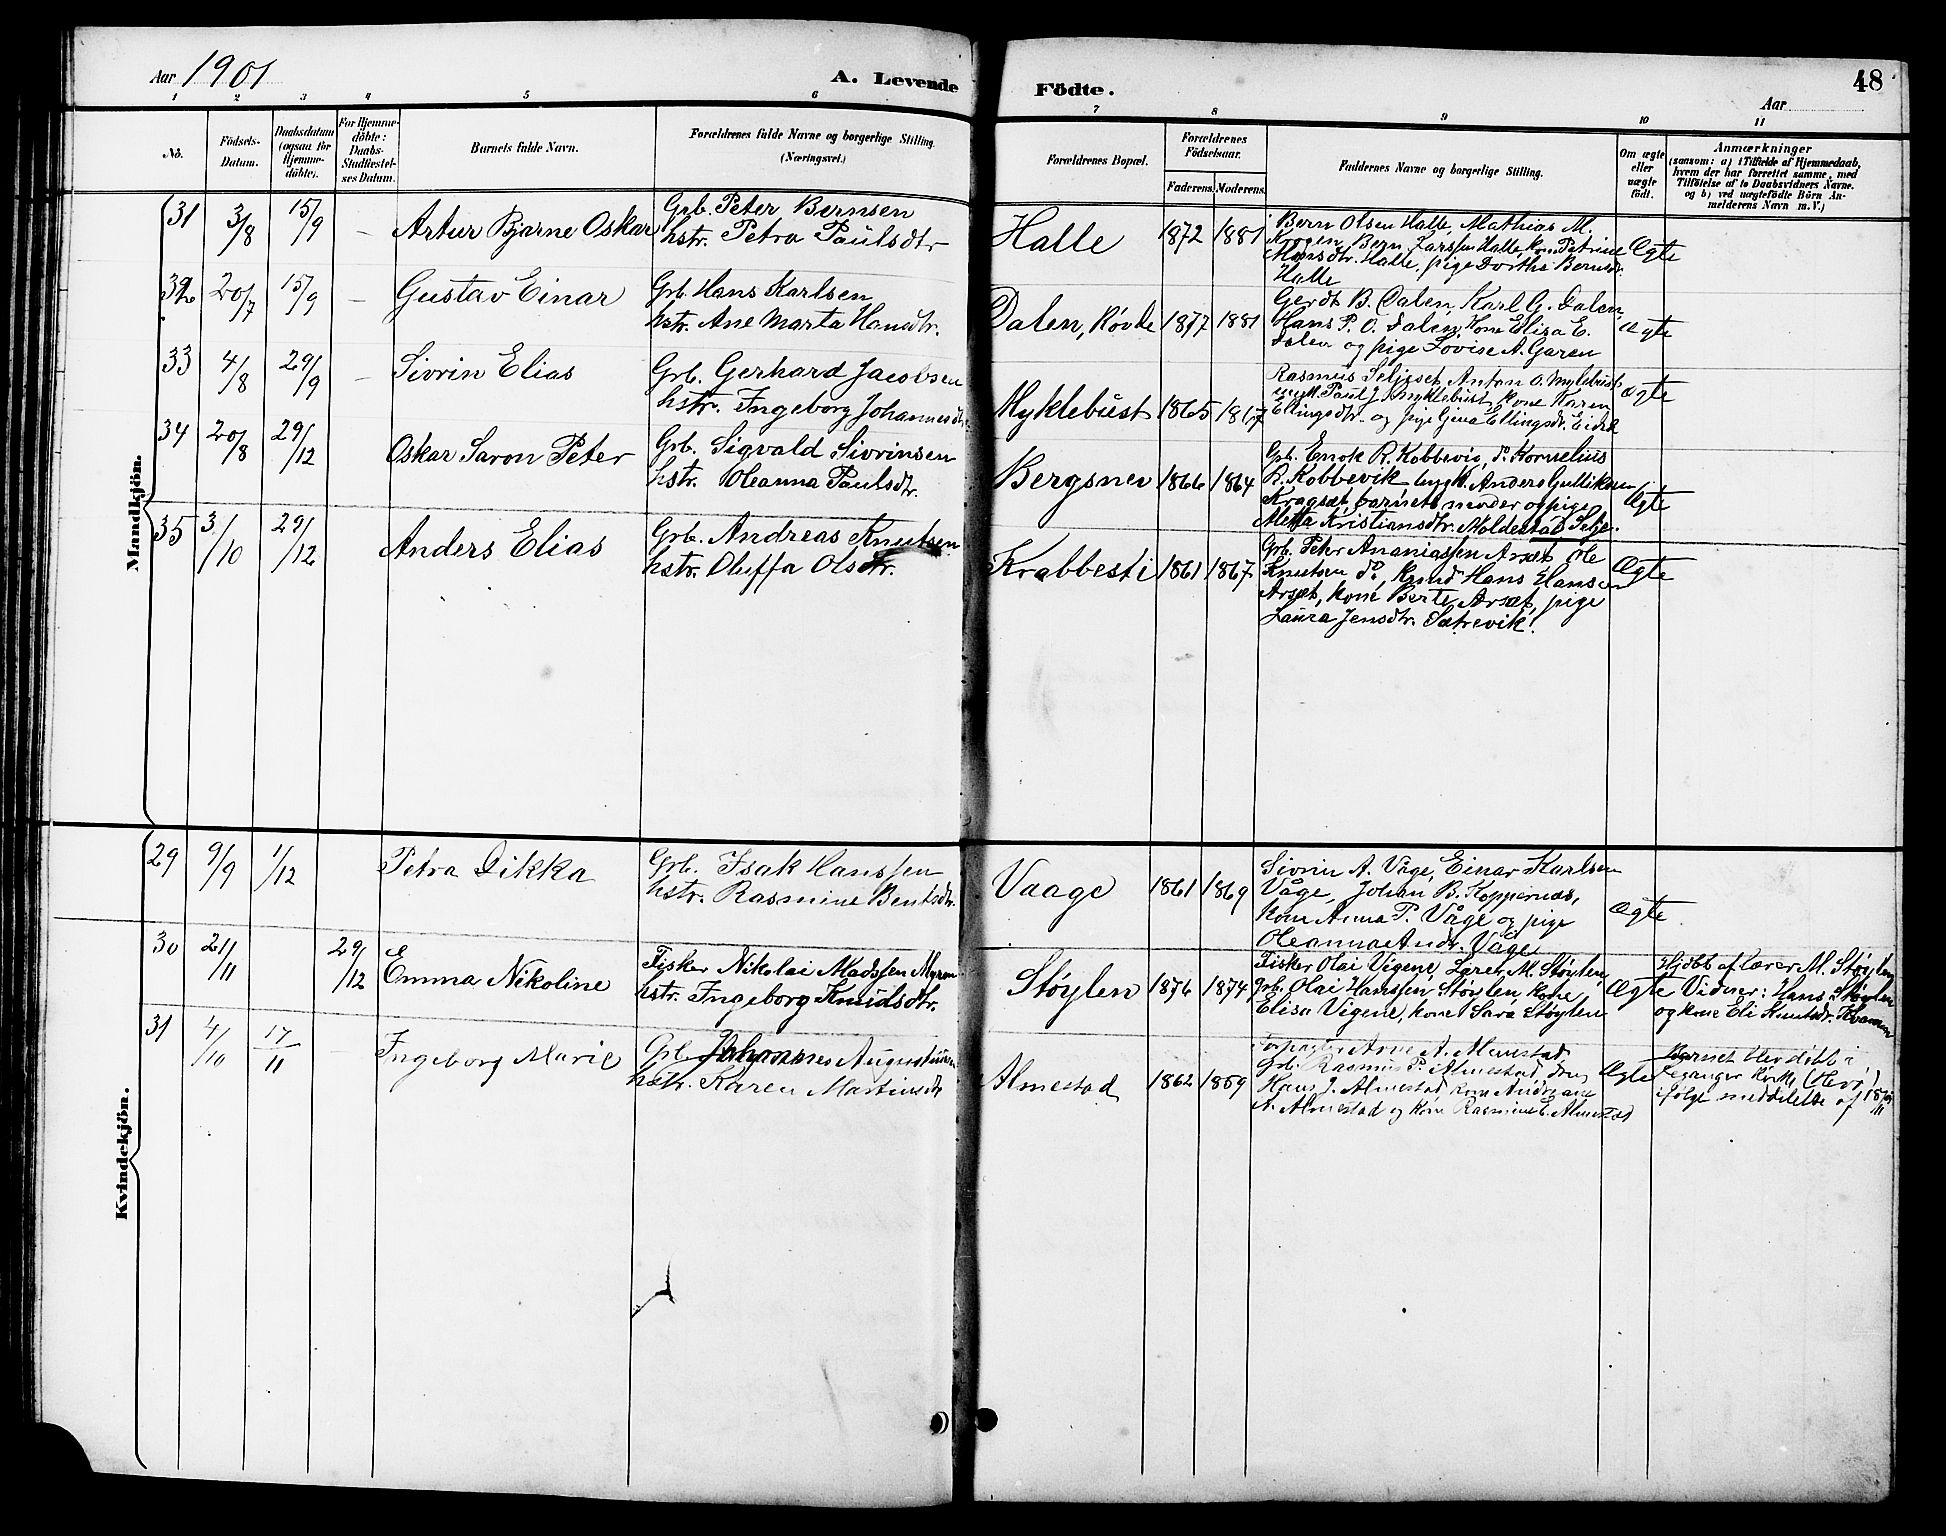 Aar 1901
A. Levende
Födte.
48
Aar
1 2 3 4 5 6 7 8 9 10 11
No.
Födsels-
Datum.
Daabsdatum
(ogsaa for
Hjemme-
döbte).
For Hjemme-
döbte:
Daabs-
Stadfæstel-
ses Datum.
Barnets fulde Navn.
Forældrenes fulde Navne og borgerlige Stilling.
(Næringsvei.)
Forældrenes Bopæl.
Forældrenes
Födselsaar.
Faderens. Moderens.
Faddernes Navne og borgerlige Stilling.
Om ægte
eller
uægte
født.
Anmærkninger
(saasom: a) i Tilfælde af Hjemmedaab,
hvem der har forrettet samme, med
Tilföielse af to Daabsvidners Navne.
og b) ved uægtefödte Börn An-
melderens Navn m. V.)
Mandkjön.
31 3/8 15/9 – Artur Bjarne Oskar
Grb. Peter Bernsen
hstr. Petra Paulsdtr
Halle 1872 1881
Bern Olsen Halle, Mathias M.
Krogen, Bern Larssen Halle, kone Petrine
Monsdtr. Halle, pige Dorthe Bernsdtr.
Halle
Ægte
32 20/7 15/9 – Gustav Einar
Grb. Hans Karlsen
hstr. Ane Marta Hansdtr.
Dalen, Rövde 1877 1881
Gerdt B. Dalen, Karl G. Dalen
Hans P. O. Dalen, kone Elisa E.
Dalen og pige Lovise A. Garen
ægte
33 4/8 29/9 – Sivrin Elias
Grb. Gerhard Jacobsen
hstr. Ingeborg Johannesdtr.
Myklebust 1865 1867
Rasmus Seljeset, Anton O. Myklebust
ungk. Paul J. Myklebust, kone Karen
Ellingsdtr. og pige Gina Ellingsdtr. Eidså
ægte
34 20/8 29/12 Oskar Saron Peter
Grb. Sigvald Sivrinsen
hstr. Oleanna Paulsdtr.
Bergsnev 1866 1864
Grb. Enok R. Kobbevig, do Kornelius
R. Kobbevik, ungk. Anders Gulliksen
Kragsæt, barnets moder og pige
Metta Kristiansdtr. Moldestad, Selje.
Ægte
35 3/10 29/12 Anders Elias
Grb. Andreas Knutsen
hstr. Oluffa Olsdtr.
Krabbesti 1861 1867
Grb. Peter Ananiassen Arsæt, Ole
Knutsen do, Knud Hans Hansen
Arsæt, kone Berte Arsæt, pige
Laura Jensdtr. Sætrevik.
Ægte
Kvindekjön.
29 9/9 1/12 Petra Dikka
Grb. Isak Hanssen
hstr. Rasmine Bentsdtr.
Vaage 1861 1869
Sivrin A. Våge, Einar Karlsen
Våge, Johan B. Koppernæs,
kone Anna P. Våge og pige
Oleanna Andr. Våge
ægte
30 21/11 29/12 Emma Nikoline
Fisker Nikolai Madssen Myren
hstr. Ingeborg Knudsdtr.
Støylen 1876 1874
Fisker Olai Vigene, Lærer M. Støylen,
grb. Olai Hanssen Støylen, kone
Elisa Vigene, kone Sara Støylen
Ægte
Hjdøbt af lærer M. Støylen
Vidner: Hans Støylen
og kone Eli Knutsdtr. Kvamen
31 4/10 17/11 – Ingeborg Marie
Grb. Johannes Augustinsen
hstr. Karen Martinsdtr
Almestad 1862 1859
Forpagter Arne A. Almestad
Grb. Rasmus P. Almestad, do
Hans J. Almestad, kone Andreane
A. Almestad og kone Rasmine E. Almestad
Ægte
Barnet blev døbt i
Leganger kirke (Herø)
ifølge meddelelse af 18/11